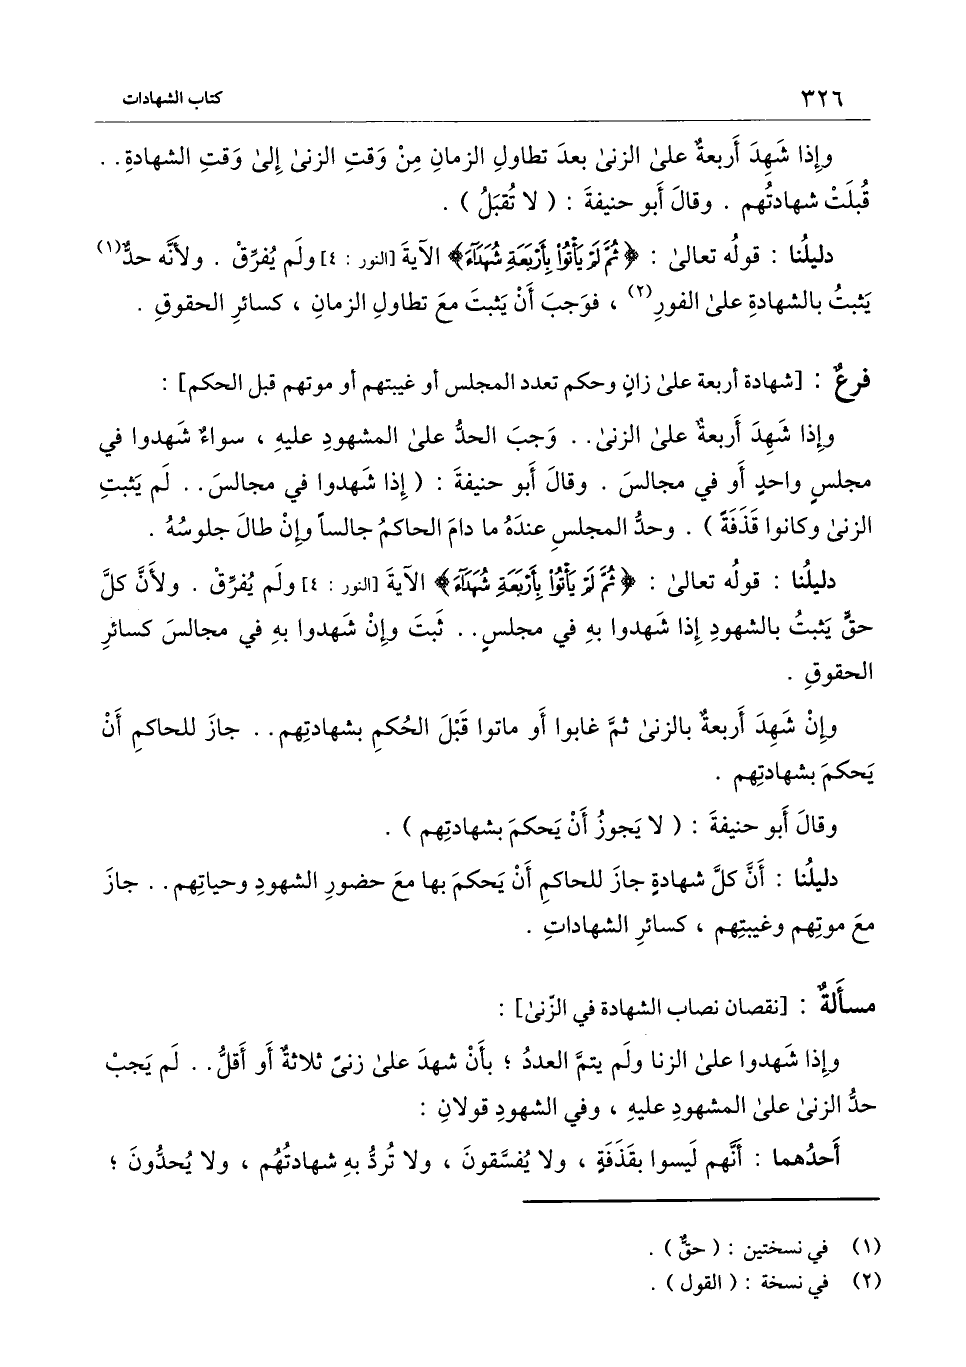 ٣٢٦ كتاب الشهادات
وإِذا شَهِدَ أَربعةٌ علىٰ الزنىٰ بعدَ تطاولِ الزمانِ مِنْ وَقتِ الزنىٰ إِلىٰ وَقتِ الشهادةِ . .
قُبلَتْ شهادتُهم . وقالَ أَبو حنيفةَ : ( لا تُقبَلُ ) .
دليلُنا : قولُه تعالىٰ : ﴿ ثُمَّ لَمْ يَأْتُوا۟ بِأَرْبَعَةِ شُهَدَآءَ﴾ الآيةَ [النور : ٤] ولَم يُفرِّقْ . ولأنَّه حدٌّ(١)
يَثبتُ بالشهادةِ علىٰ الفورِ(٢) ، فوَجبَ أَنْ يَثبتَ معَ تطاولِ الزمانِ ، كسائرِ الحقوقِ .
فرعٌ : [شهادة أربعة علىٰ زانٍ وحكم تعدد المجلس أو غيبتهم أو موتهم قبل الحكم] :
وإِذا شَهِدَ أَربعةٌ علىٰ الزنىٰ . . وَجبَ الحدُّ علىٰ المشهودِ عليهِ ، سواءٌ شَهدوا في
مجلسٍ واحدٍ أَو في مجالسَ . وقالَ أَبو حنيفةَ : ( إِذا شَهدوا في مجالسَ . . لَم يَثبتِ
الزنىٰ وكانوا قَذَفَةً ) . وحدُّ المجلسِ عندَهُ ما دامَ الحاكمُ جالساً وإِنْ طالَ جلوسُهُ .
دليلُنا : قولُه تعالىٰ : ﴿ ثُمَّ لَمْ يَأْتُوا۟ بِأَرْبَعَةِ شُهَدَآءَ﴾ الآيةَ [النور : ٤] ولَم يُفرِّقْ . ولأَنَّ كلَّ
حقٍّ يَثبتُ بالشهودِ إِذا شَهدوا بهِ في مجلسٍ . . ثَبتَ وإِنْ شَهدوا بهِ في مجالسَ كسائرِ
الحقوقِ .
وإِنْ شَهِدَ أَربعةٌ بالزنىٰ ثمَّ غابوا أَو ماتوا قَبْلَ الحُكمِ بشهادتِهم . . جازَ للحاكمِ أَنْ
يَحكمَ بشهادتِهم .
وقالَ أَبو حنيفةَ : ( لا يَجوزُ أَنْ يَحكمَ بشهادتِهم ) .
دليلُنا : أَنَّ كلَّ شهادةٍ جازَ للحاكمِ أَنْ يَحكمَ بها معَ حضورِ الشهودِ وحياتِهم . . جازَ
معَ موتِهم وغيبتِهم ، كسائرِ الشهاداتِ .
مسأَلةٌ : [نقصان نصاب الشهادة في الزّنىٰ] :
وإِذا شَهدوا علىٰ الزنا ولَم يتمَّ العددُ ؛ بأَنْ شهدَ علىٰ زنىً ثلاثةٌ أَو أَقلُّ . . لَم يَجبْ
حدُّ الزنىٰ علىٰ المشهودِ عليهِ ، وفي الشهودِ قولانِ :
أَحدُهما : أَنَّهم لَيسوا بقَذَفَةٍ ، ولا يُفسَّقونَ ، ولا تُردُّ بهِ شهادتُهُم ، ولا يُحدُّونَ ؛
(١) في نسختين : ( حقٌّ ) .
(٢) في نسخة : ( القول ) .